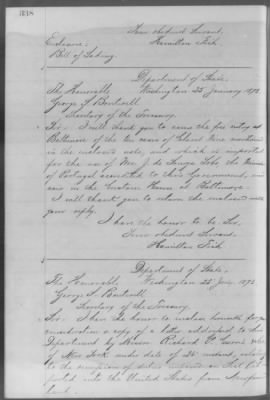 338
Your obedient Servant,
Enclosure: Hamilton Fish
Bill of Lading
Department of State,
The Honorable Washington 25 January 1873.
George S. Boutwell
Secretary of the Treasury.
Sir: I will thank you to cause the free entry at
Baltimore of the ten cases of Island Wine mentioned
in the enclosed note, and which is imported
for the use of Mr. J. de Souza Lobo the Minister
of Portugal accredited to this Government,
in the Custom House at Baltimore.
I will thank you to return the enclosure with
your reply.
I have the honor to be, Sir,
Your obedient Servant,
Hamilton Fish
Department of State,
The Honorable Washington 25 Jany. 1873
George S. Boutwell
Secretary of the Treasury.
Sir: I have the honor to enclose herewith for
consideration a copy of a letter addressed to this
Department by Messrs Richard
of New York under date of 24 instant, relating
to the exemption of duties on
ported into the United States from Newfound
land.